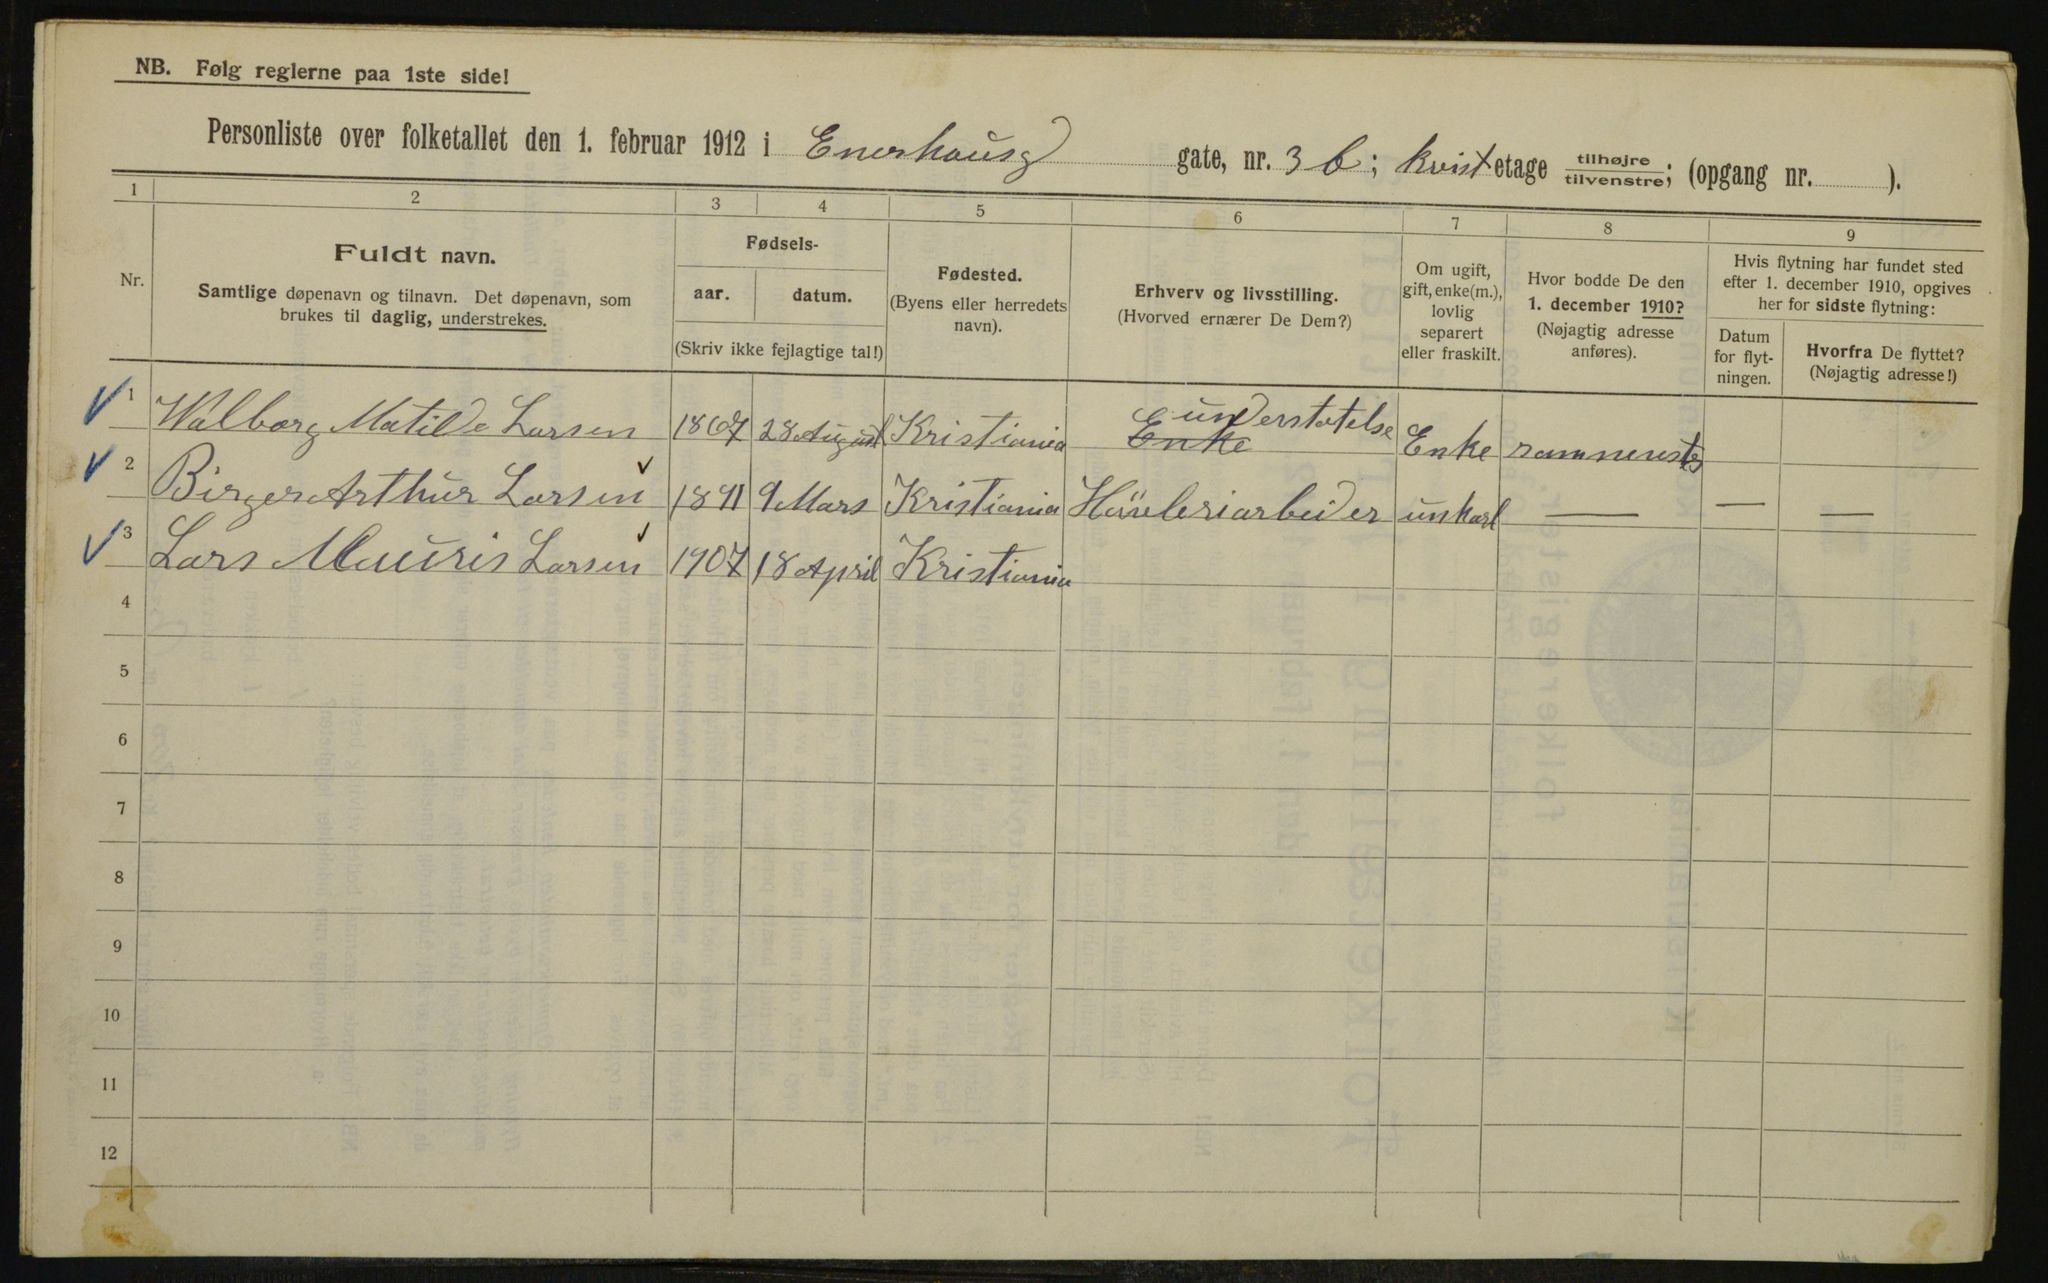 NB. Følg reglerne paa 1ste side!
Personliste over folketallet den 1. februar 1912 i Enerhausg gate, nr. 3 b; kvist etage tilhøjre/tilvenstre; (opgang nr. ).
1 2 3 4 5 6 7 8 9
Nr.
Fuldt navn.
Samtlige døpenavn og tilnavn. Det døpenavn, som
brukes til daglig, understrekes.
Fødsels-
aar. datum.
(Skriv ikke fejlagtige tal!)
Fødested.
(Byens eller herredets
navn).
Erhverv og livsstilling.
(Hvorved ernærer De Dem?)
Om ugift,
gift, enke(m.),
lovlig
separert
eller fraskilt.
Hvor bodde De den
1. december 1910?
(Nøjagtig adresse
anføres).
Hvis flytning har fundet sted
efter 1. december 1910, opgives
her for sidste flytning:
Datum
for flyt-
ningen.
Hvorfra De flyttet?
(Nøjagtig adresse!)
understøtelse
1 Walborg Matilde Larsen 1867 28 August Kristiania Enke Enke sammensteds
2 Birger Arthur Larsen 1891 9 Mars Kristiania Høvleriarbeider unkarl — — —
3 Lars Mauris Larsen 1907 18 April Kristiania
4
5
6
7
8
9
10
11
12